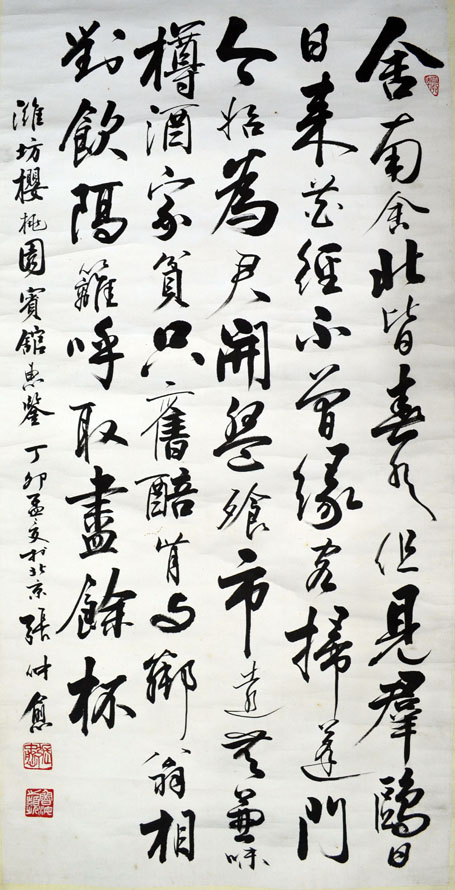 舍南舍北皆春水但見群鷗日
日來花徑不曾緣客掃蓬門
今始為君開盤飧市遠無兼味
樽酒家貧只舊醅肯與鄰翁相
對飲隔籬呼取盡餘杯
濰坊櫻桃園賓館惠鑒 丁卯孟夏於北京 張仲愈